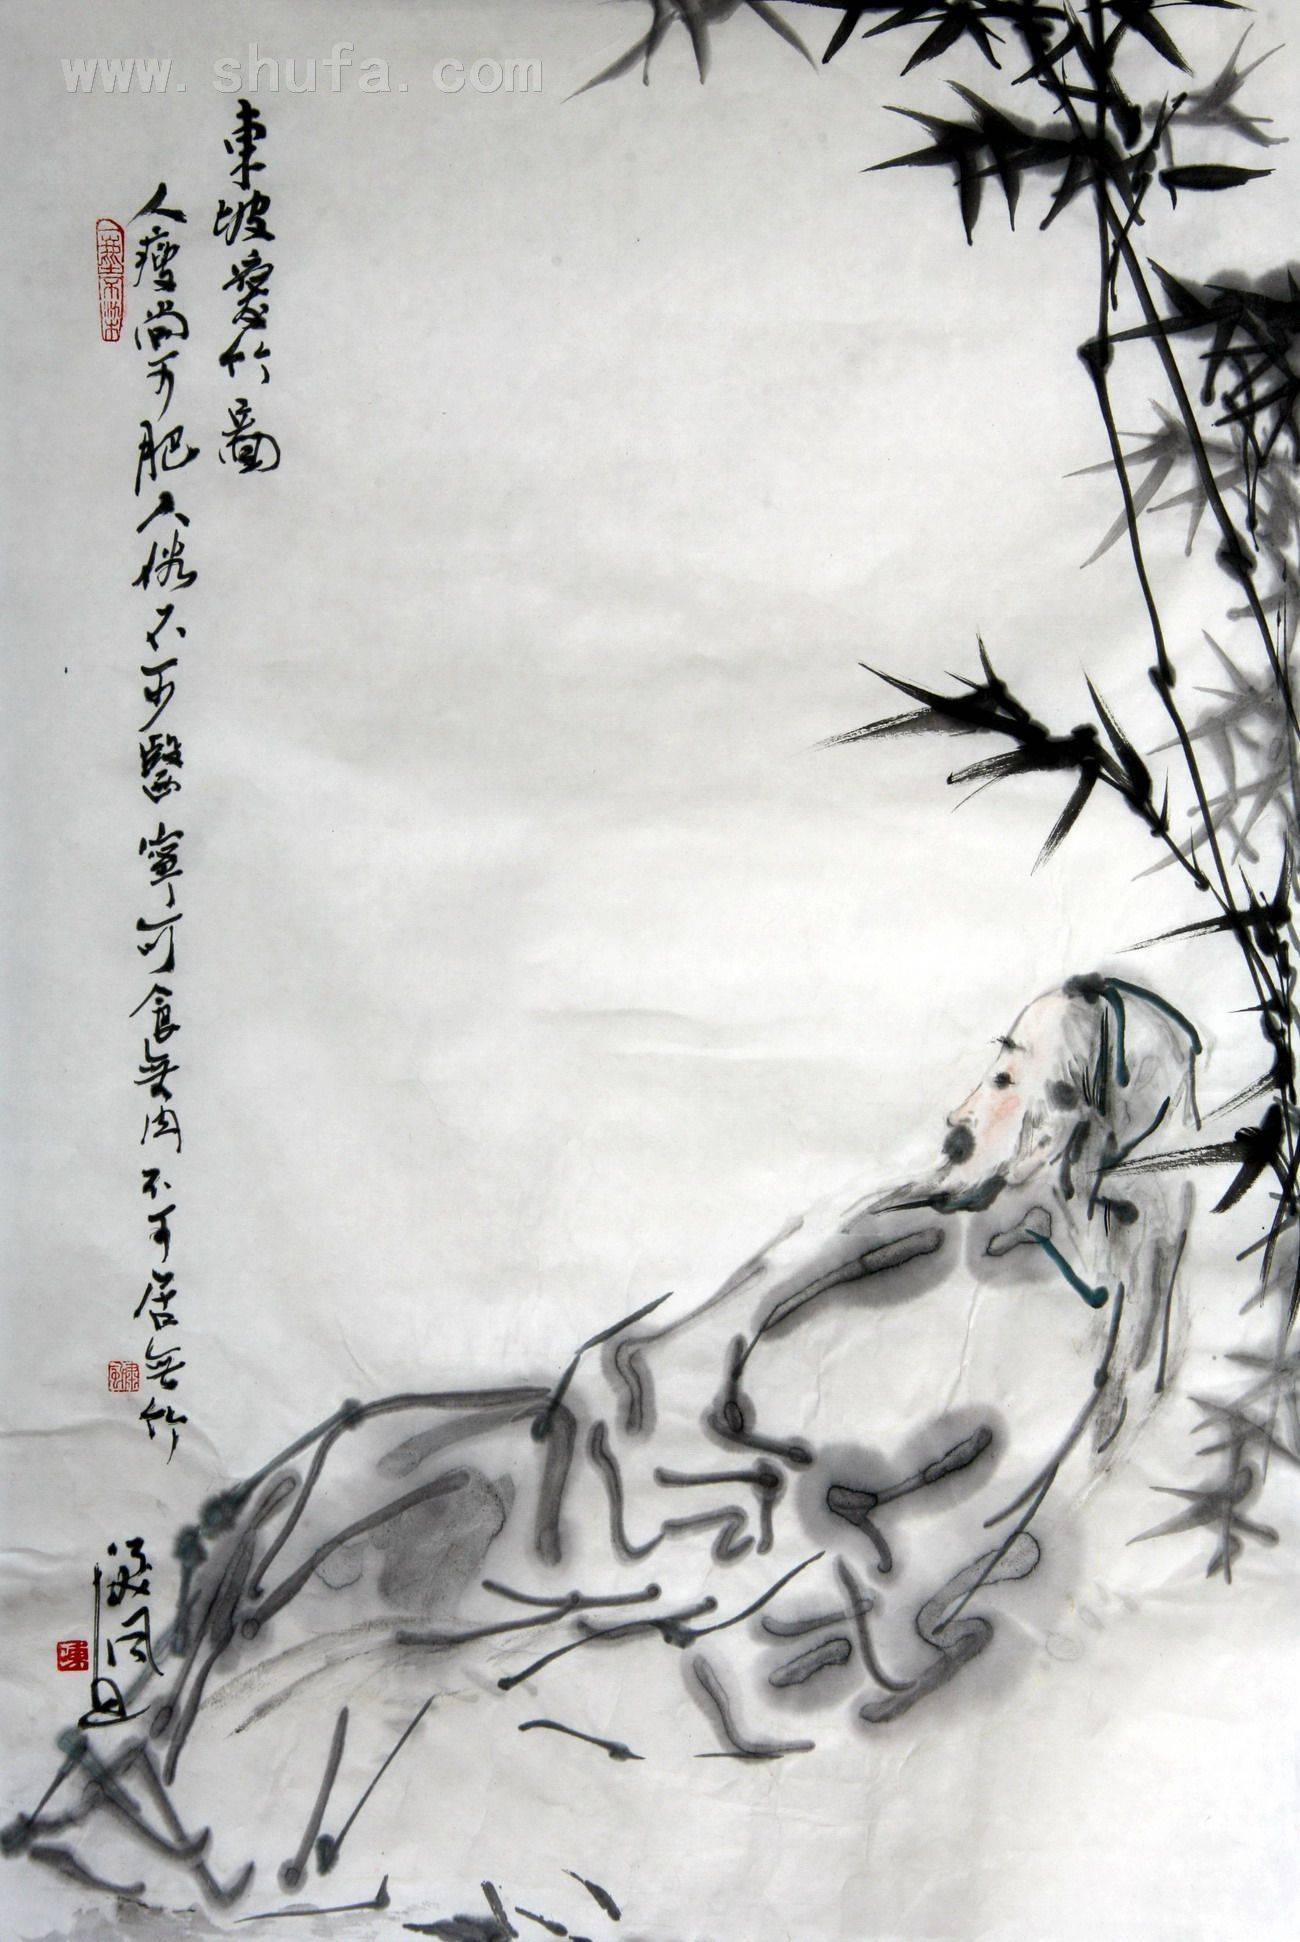 www.shufa.com
東坡愛竹圖
人瘦尚可肥人俗不可醫寧可食無肉不可居無竹